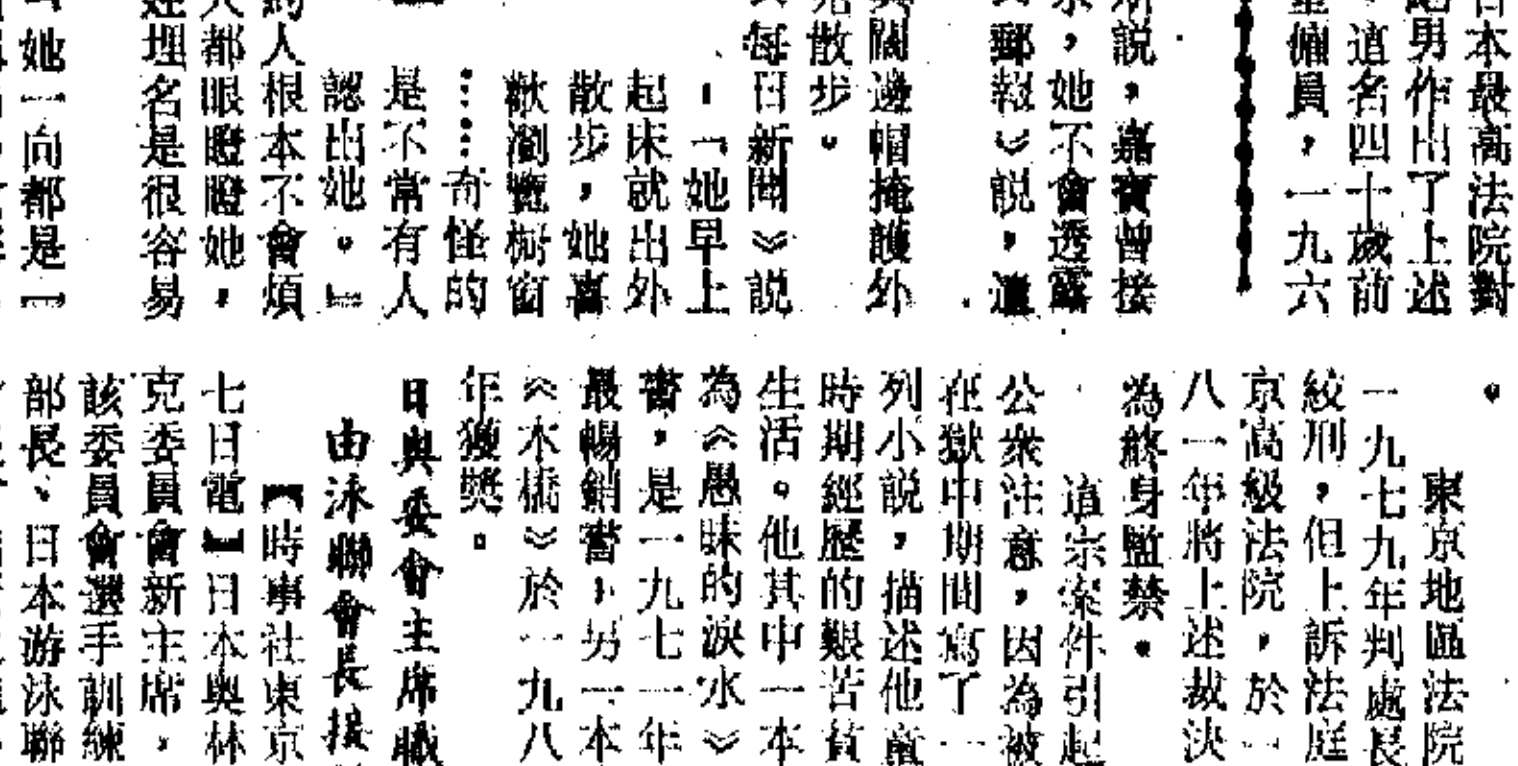 日本最高法院對
男作出了上述
這名四十歲前
僱員，一九六
說，嘉寶曾接
，她不會透露
郵報》說，這
闊邊帽掩護外
散步。
每日新聞》說
，「她早上
起床就出外
散步，她喜
歡瀏覽櫥窗
……奇怪的
是不常有人
認出她。」
人根本不會煩
都眼瞪瞪她，
埋名是很容易
她一向都是「
。
東京地區法院
一九七九年判處長
絞刑，但上訴法庭
京高級法院，於一
八一年將上述裁決
為終身監禁。
這宗案件引起
公衆注意，因為被
在獄中期間寫了一
列小說，描述他童
時期經歷的艱苦貧
生活。他其中一本
為《愚昧的淚水》
書，是一九七一年
最暢銷書，另一本
《木橋》於一九八
年獲獎。
日奧委會主席職
由泳聯會長接
【時事社東京
七日電】日本奧林
克委員會新主席，
該委員會選手訓練
部長、日本游泳聯